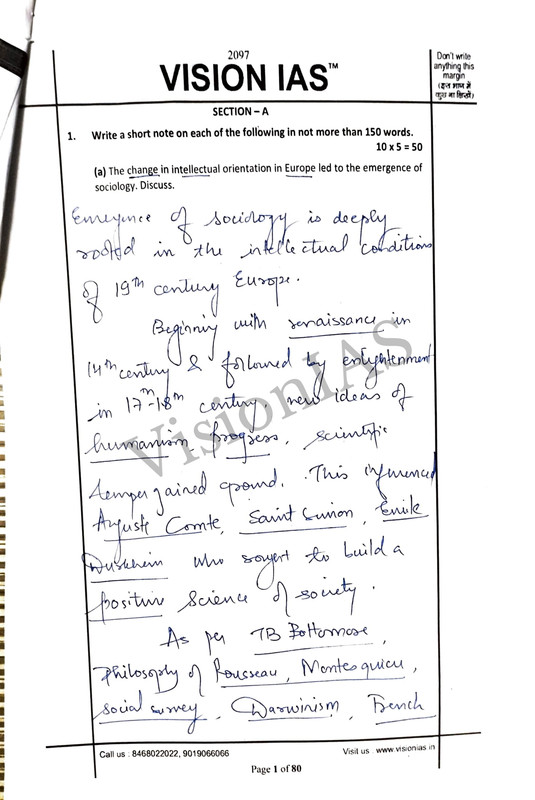 2097
VISION IAS™
Don't write
anything this
margin
(इस भाग में
कुछ ना लिखें)
SECTION – A
1. Write a short note on each of the following in not more than 150 words.
10 x 5 = 50
(a) The change in intellectual orientation in Europe led to the emergence of
sociology. Discuss.
Emergence of sociology is deeply
rooted in the intellectual conditions
of 19th century Europe.
Beginning with renaissance in
14th century & followed by enlightenment
in 17th-18th century, new ideas of
humanism, progress, scientific
temper gained ground. This influenced
Auguste Comte, Saint Simon, Emile
Durkheim who sought to build a
positive science of society.
As per TB Bottomore,
Philosophy of Rousseau, Montesquieu,
social survey, Darwinism, French
VisionIAS
Call us : 8468022022, 9019066066
Visit us : www.visionias.in
Page 1 of 80